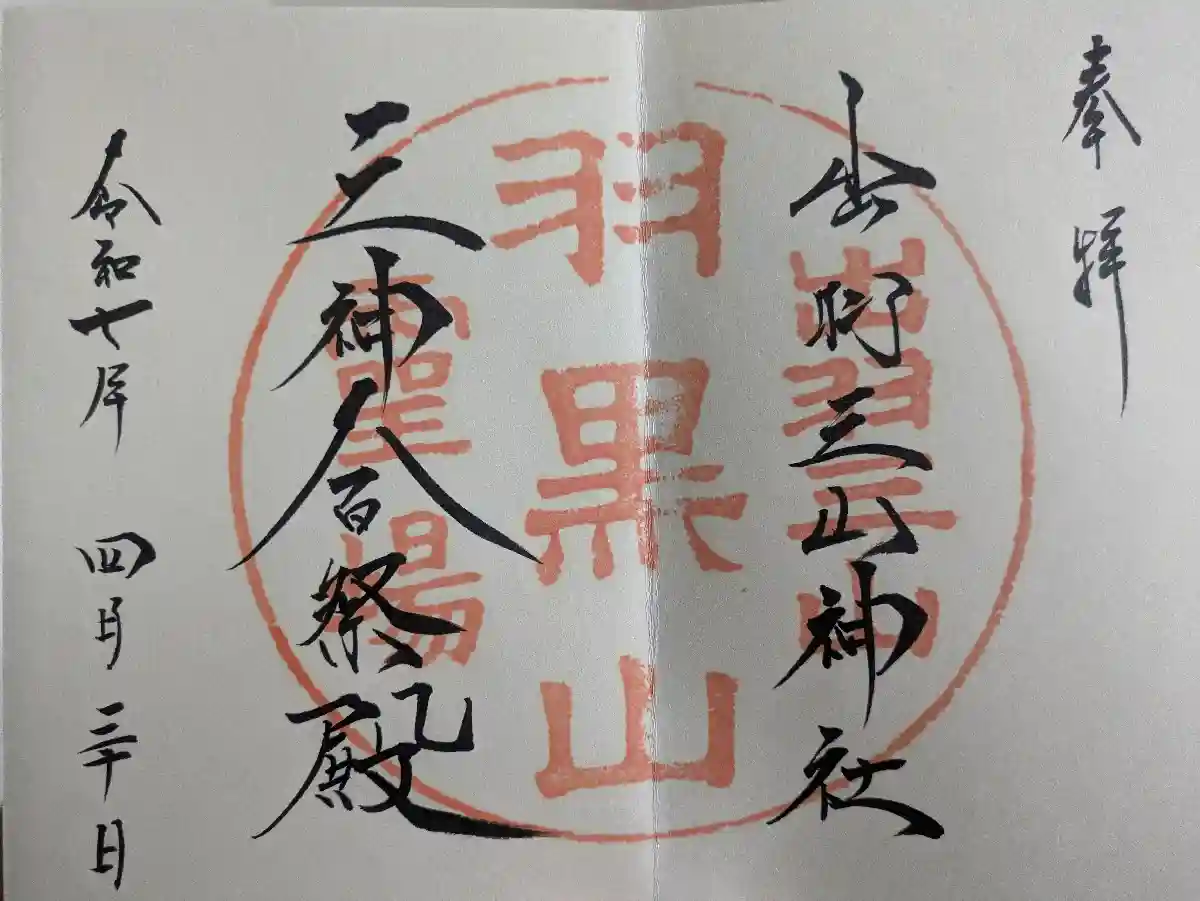 奉拝
出羽三山神社
出羽三山
羽黒山
靈場
三神合祭殿
令和七年 四月三十日